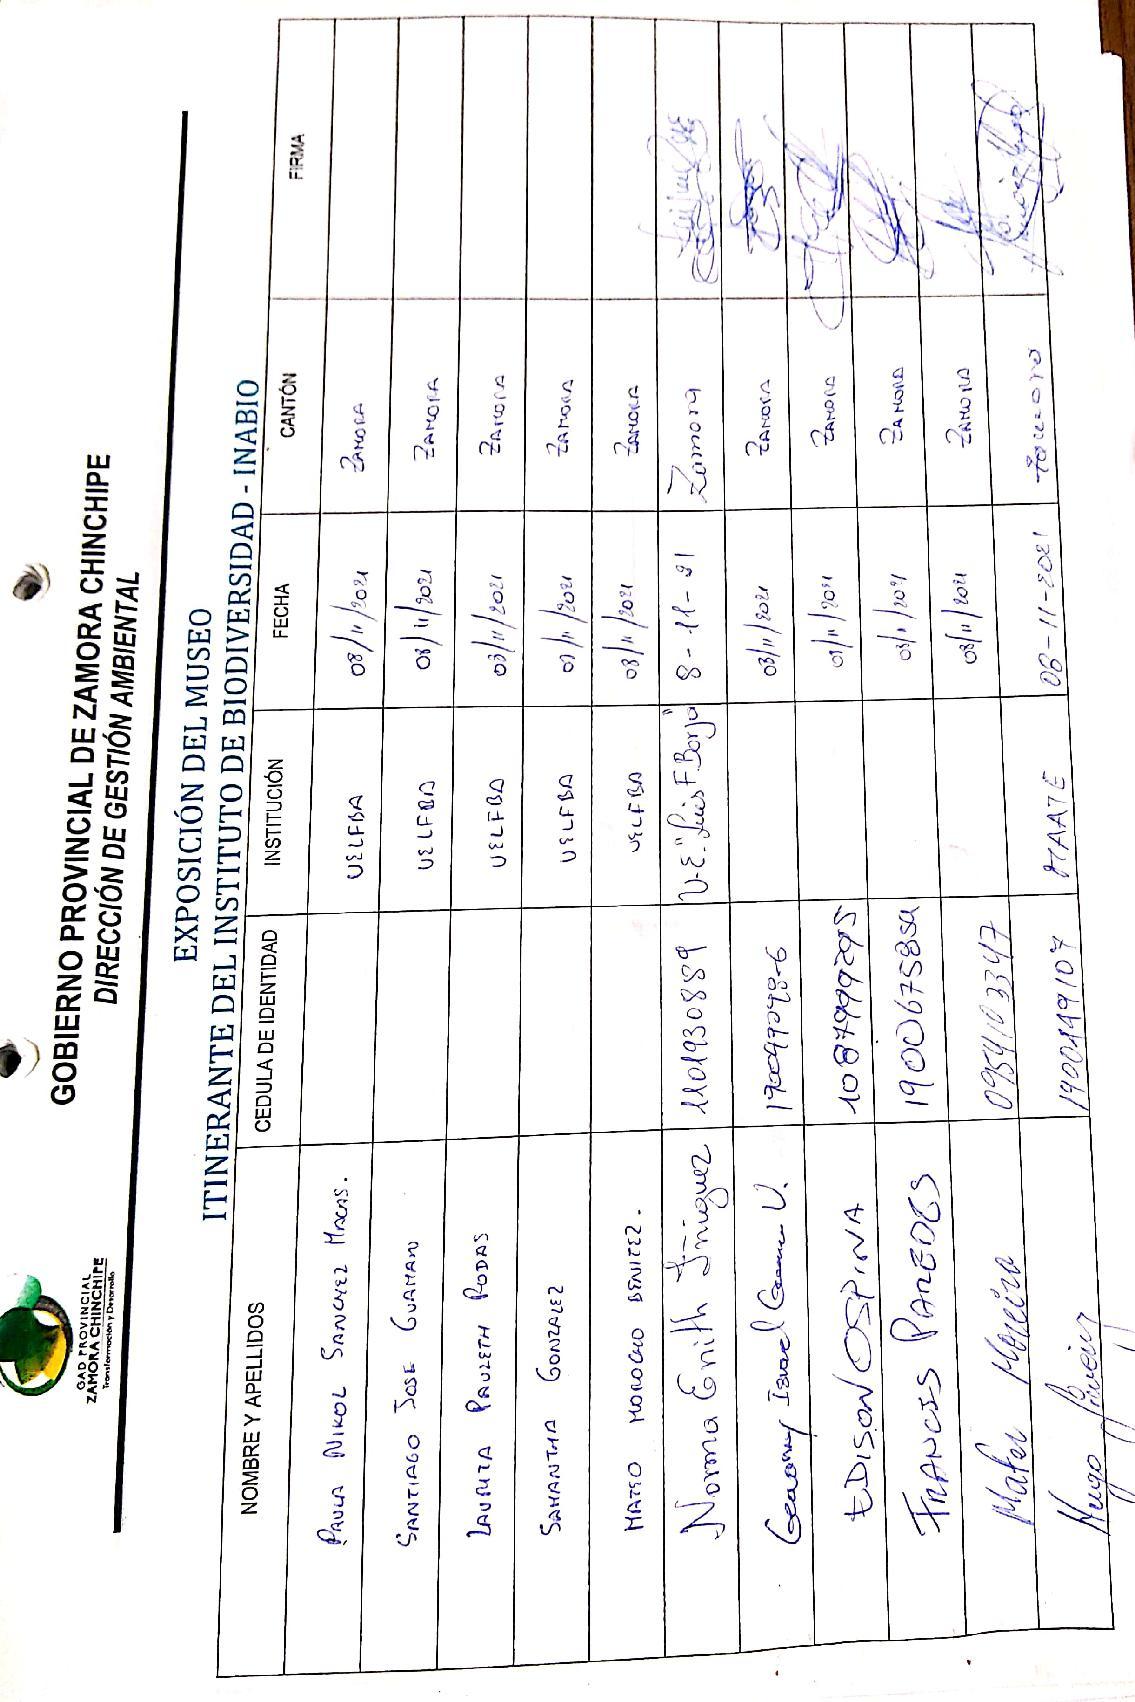 GAD PROVINCIAL
ZAMORA CHINCHIPE
Transformación y Desarrollo
GOBIERNO PROVINCIAL DE ZAMORA CHINCHIPE
DIRECCIÓN DE GESTIÓN AMBIENTAL
EXPOSICIÓN DEL MUSEO
ITINERANTE DEL INSTITUTO DE BIODIVERSIDAD - INABIO
NOMBRE Y APELLIDOS CEDULA DE IDENTIDAD INSTITUCIÓN FECHA CANTÓN FIRMA
PAULA NIKOL SANCHEZ MACAS. UELFBA 08/11/2021 ZAMORA
SANTIAGO JOSE GUAMAN UELFBA 08/11/2021 ZAMORA
LAURITA PAULETH RODAS UELFBA 08/11/2021 ZAMORA
SAMANTHA GONZALEZ UELFBA 08/11/2021 ZAMORA
MATEO MOROCHO BENITEZ. UELFBA 08/11/2021 ZAMORA
Norma Enith Iñiguez 1101930889 U.E. "Luis F. Borja" 8-11-21 Zamora
Israel V. 08/11/2021 ZAMORA
EDISON OSPINA 08/11/2021 ZAMORA
FRANCIS PAREDES 08/11/2021 ZAMORA
Mateo Moreira 0954103347 08/11/2021 ZAMORA
Hugo 1900149107 MAATE 08-11-2021